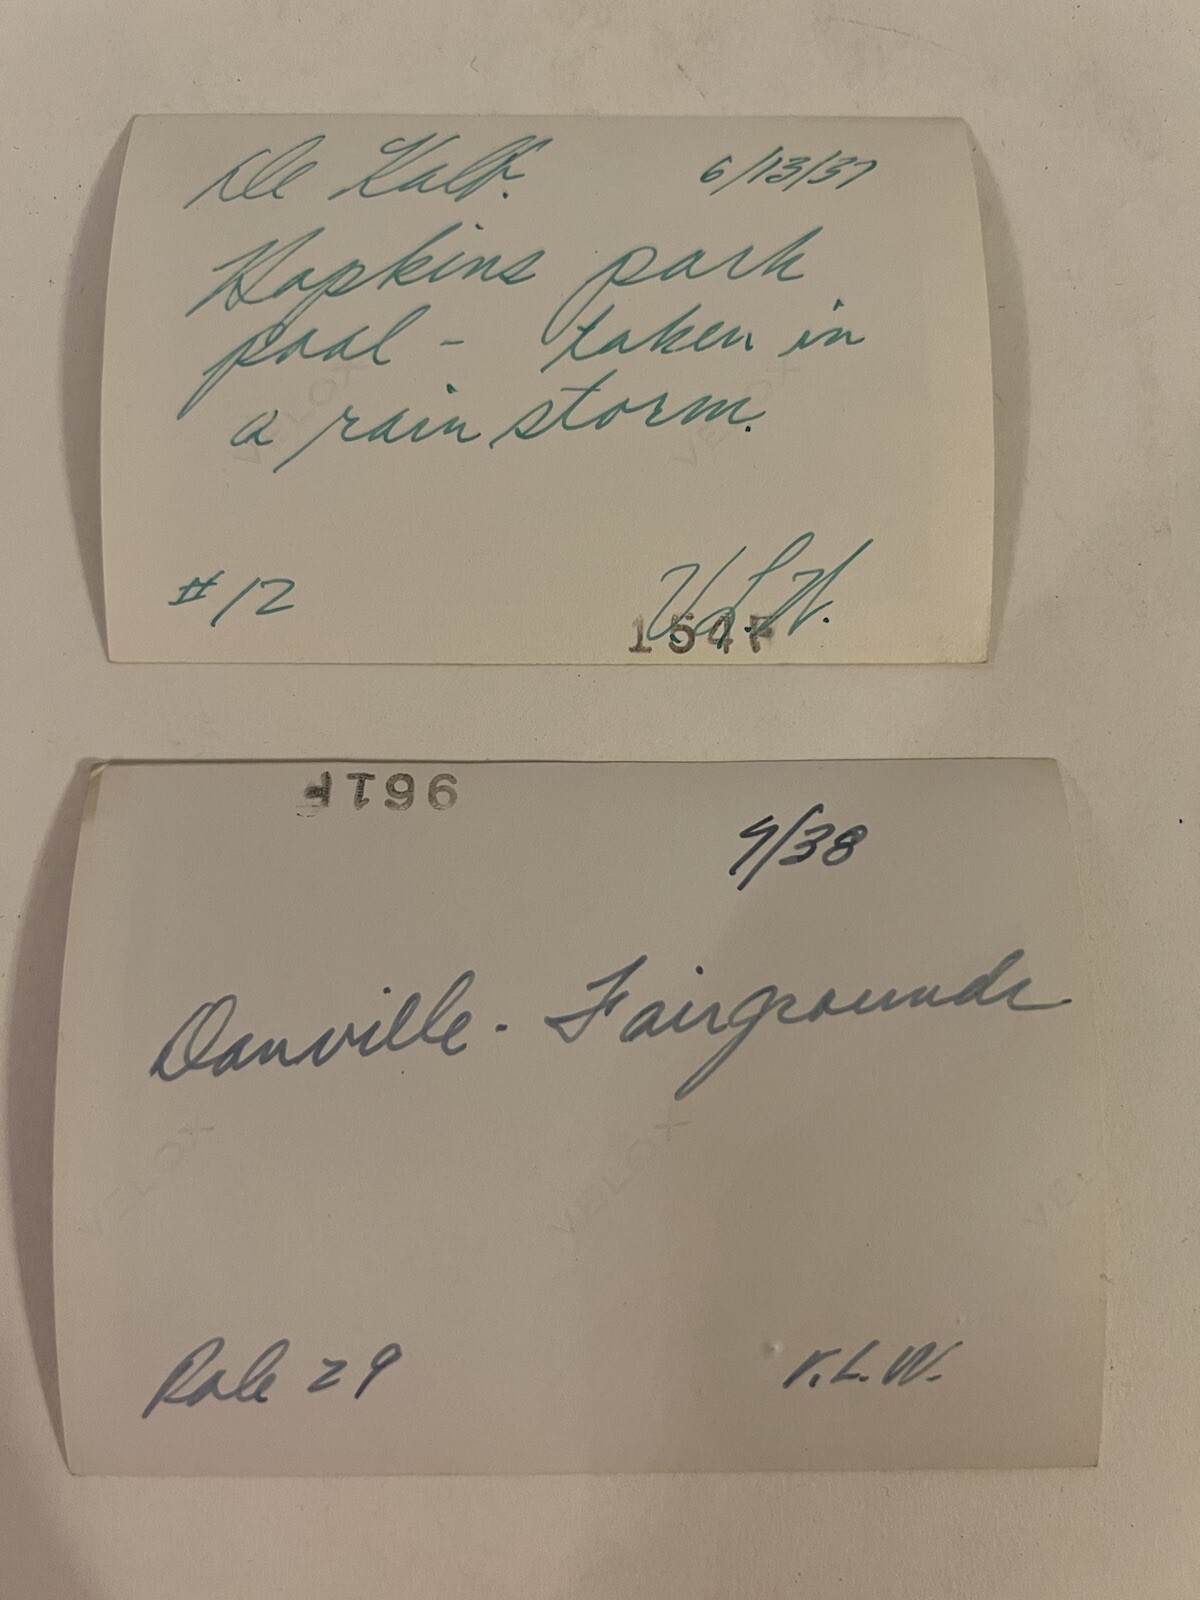 De Kalb. 6/13/37
Hopkins park
pool - taken in
a rain storm.
VELOX VELOX
#12 V.L.W.
154F
961F
9/38
Danville - Fairgrounds
VELOX VELOX VEL
Role 29 V.L.W.